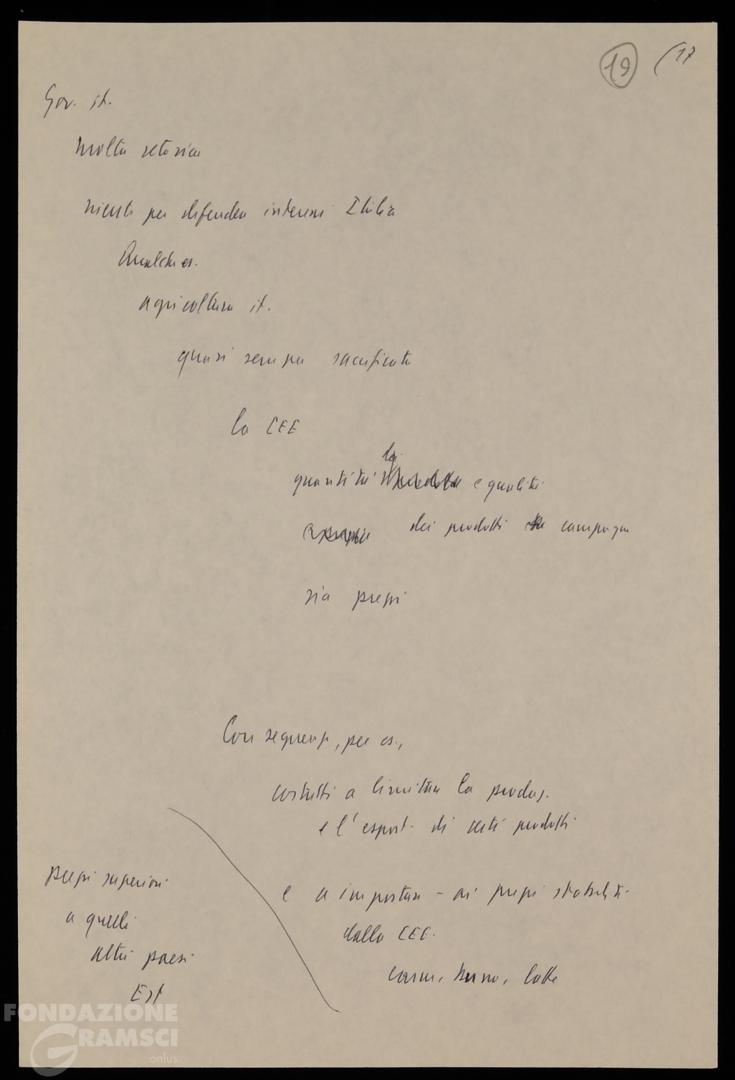 19 17
Gov. it.
molta retorica
niente per difendere interessi Italia
Qualche es.
agricoltura it.
quasi sempre sacrificata
la CEE
quantità e qualità
dei prodotti campagna
sia prezzi
Conseguenze, per es.,
costretti a limitare la produz.
e l'esport. di certi prodotti
e a importare - ai prezzi stabiliti
dalla CEE.
carne, burro, latte
prezzi superiori
a quelli
altri paesi
Est
FONDAZIONE
GRAMSCI
onlus